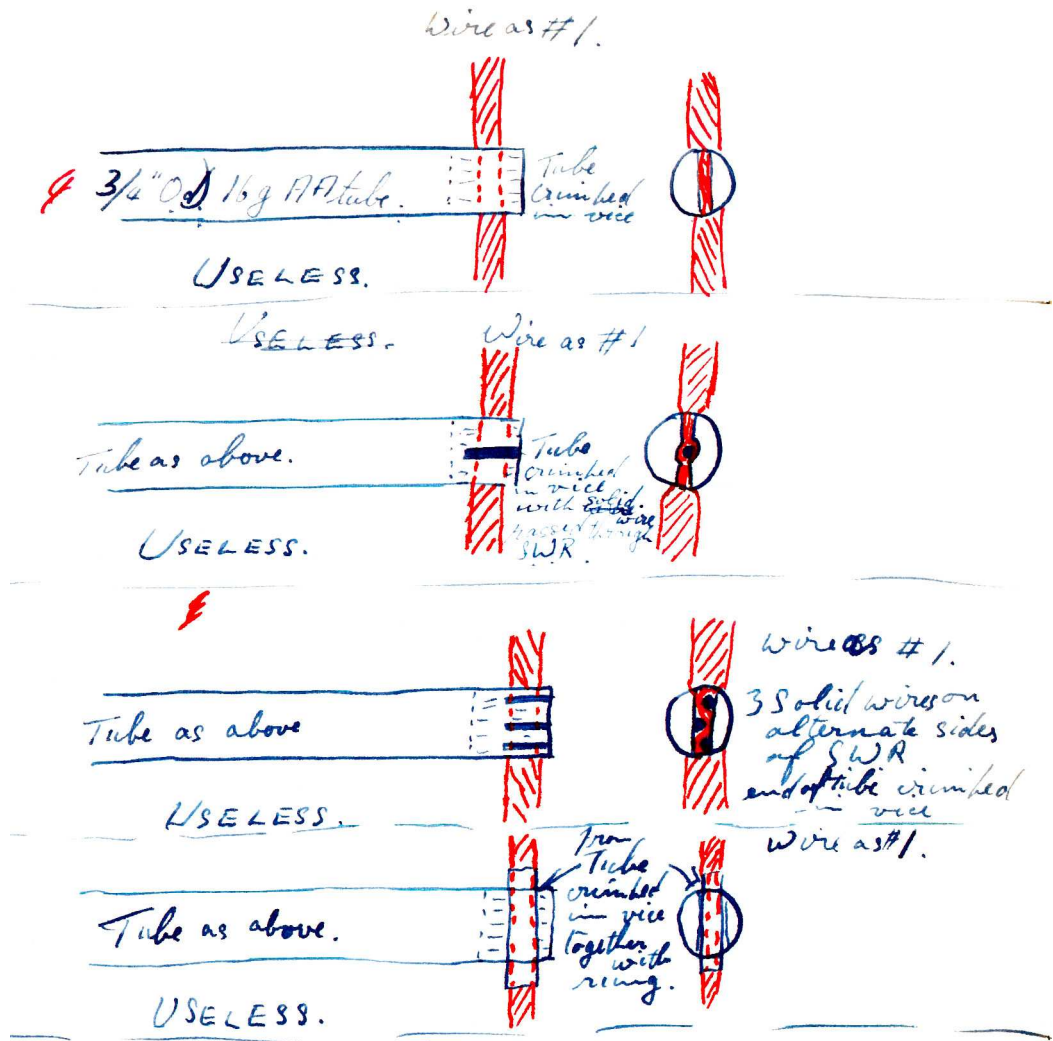 Wire as #1.
3/4" Od 16g AA tube.
Tube
crimped
in vice
USELESS.
USELESS.
Wire as #1
Tube as above.
Tube
crimped
in vice
with solid
wire
passed through
SWR
USELESS.
Tube as above
Wire as #1.
3 Solid wires on
alternate sides
of SWR
end of tube crimped
in vice
USELESS.
Wire as #1.
Tube
crimped
in vice
together
with
Tube as above.
USELESS.